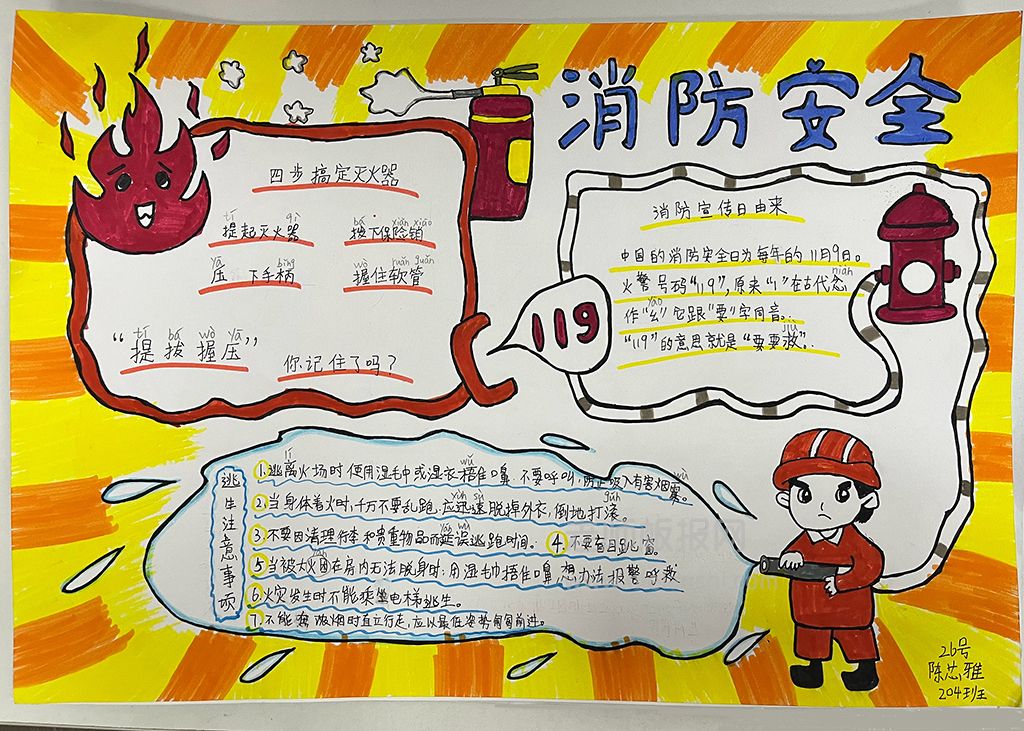 消防安全
四步搞定灭火器
提起灭火器 拔下保险销
压下手柄 握住软管
“提拔握压”
你记住了吗？
119
消防宣传日由来
中国的消防安全日为每年的11月9日。
火警号码“119”,原来“1”在古代念
作“幺”它跟“要”字同音。
“119”的意思就是“要要救”。
逃生注意事项
1.逃离火场时使用湿毛巾或湿衣捂住口鼻 不要呼叫,防止吸入有害烟雾。
2.当身体着火时,千万不要乱跑,应迅速脱掉外衣,倒地打滚。
3.不要因清理行李和贵重物品而延误逃跑时间。 4.不要盲目跳窗。
5.当被大火困在房内无法脱身时,用湿毛巾捂住口鼻 想办法报警呼救
6.火灾发生时不能乘坐电梯逃生。
7.不能 烟时直立行走,应以最低姿势匍匐前进。
26号
陈芯雅
204班